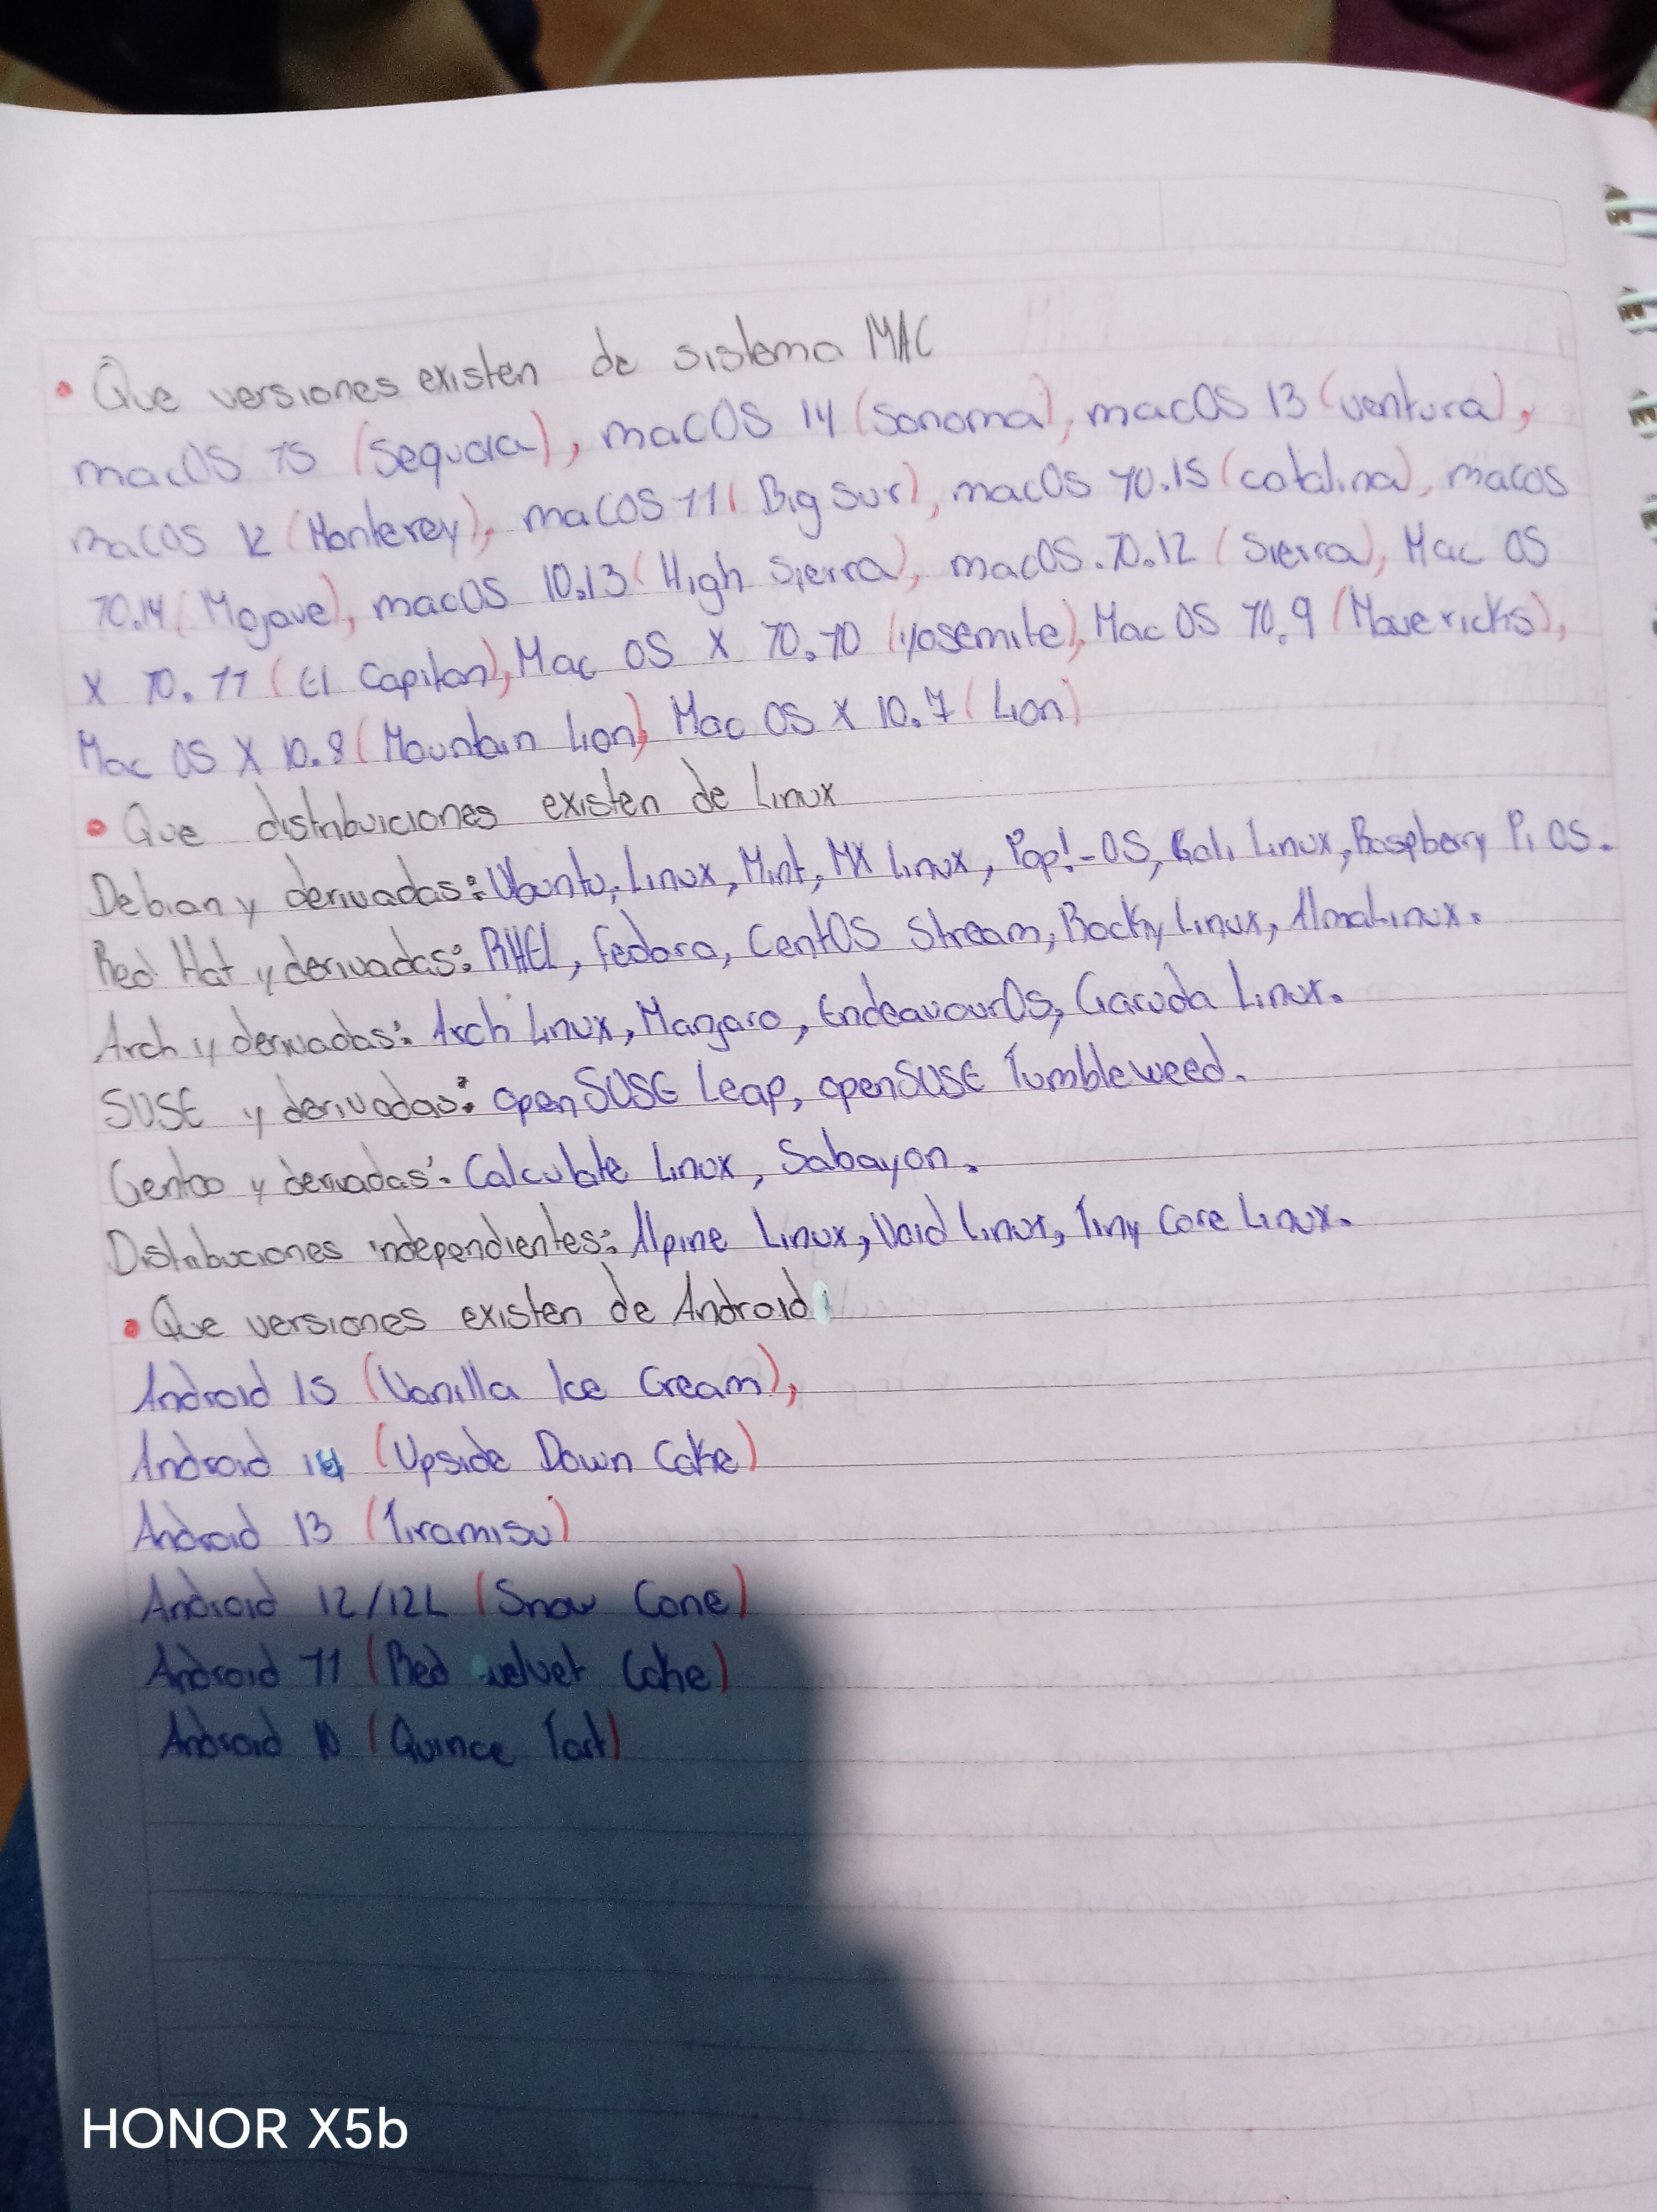 • Que versiones existen de sistema MAC
macOS 15 (Sequoia), macOS 14 (Sonoma), macOS 13 (ventura),
macOS 12 (Monterey), macOS 11 (Big Sur), macOS 10.15 (catalina), macOS
10.14 (Mojave), macOS 10.13 (High Sierra), macOS.10.12 (Sierra), Mac OS
X 10.11 (El Capitan), Mac OS X 10.10 (yosemite), Mac OS 10.9 (Mavericks),
Mac OS X 10.8 (Mountain Lion), Mac OS X 10.7 (Lion)
• Que distribuiciones existen de Linux
Debian y derivadas: Ubuntu, Linux, Mint, MX Linux, Pop!-OS, Kali Linux, Raspberry Pi OS.
Red Hat y derivadas: RHEL, Fedora, CentOS Stream, Rocky Linux, AlmaLinux.
Arch y derivadas: Arch Linux, Manjaro, EndeavourOS, Garuda Linux.
SUSE y derivadas: openSUSE Leap, openSUSE Tumbleweed.
Gentoo y derivadas: Calculate Linux, Sabayon.
Distribuciones independientes: Alpine Linux, Void Linux, Tiny Core Linux.
• Que versiones existen de Android
Android 15 (Vanilla Ice Cream),
Android 14 (Upside Down Cake)
Android 13 (Tiramisu)
Android 12/12L (Snow Cone)
Android 11 (Red velvet Cake)
Android 10 (Quince Tart)
HONOR X5b